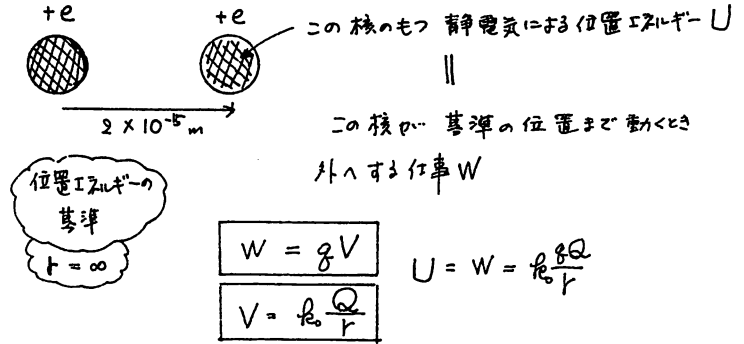 +e
+e
この核のもつ 静電気による位置エネルギー U
||
2 × 10⁻¹⁵ m
この核が 基準の位置まで動くとき
外へする仕事 W
位置エネルギーの
基準
r = ∞
W = qV
V = k₀ Q/r
U = W = k₀ qQ/r